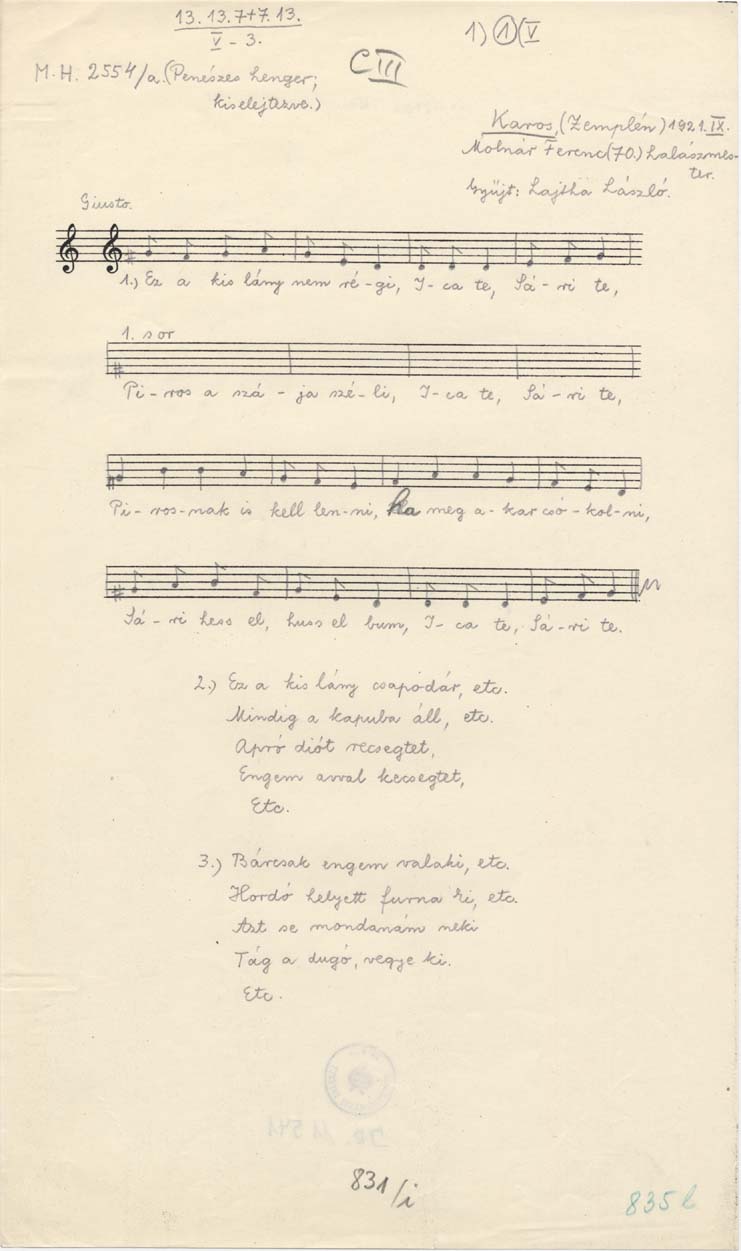 13. 13. 7+7. 13.
V - 3.
1) 1 (V
C III
M. H. 2554/a. (Penészes henger;
kiselejtezve.)
Karos, (Zemplén) 1921. IX.
Molnár Ferenc (70.) halászmes-
ter.
Gyűjt: Lajtha László.
Giusto.
1.) Ez a kis lány nem ré-gi, I-ca te, Sá-ri te,
1. sor
Pi-ros a szá-ja szé-li, I-ca te, Sá-ri te,
Pi-ros-nak is kell len-ni, ha meg a-kar csó-kol-ni,
Sá-ri hess el, huss el bum, I-ca te, Sá-ri te.
2.) Ez a kis lány csapodár, etc.
Mindig a kapuba áll, etc.
Apró diót recsegtet,
Engem avval kecsegtet,
Etc.
3.) Bárcsak engem valaki, etc.
Hordó helyett furna ki, etc.
Azt se mondanám neki
Tág a dugó, vegye ki.
Etc.
831/i
835 l